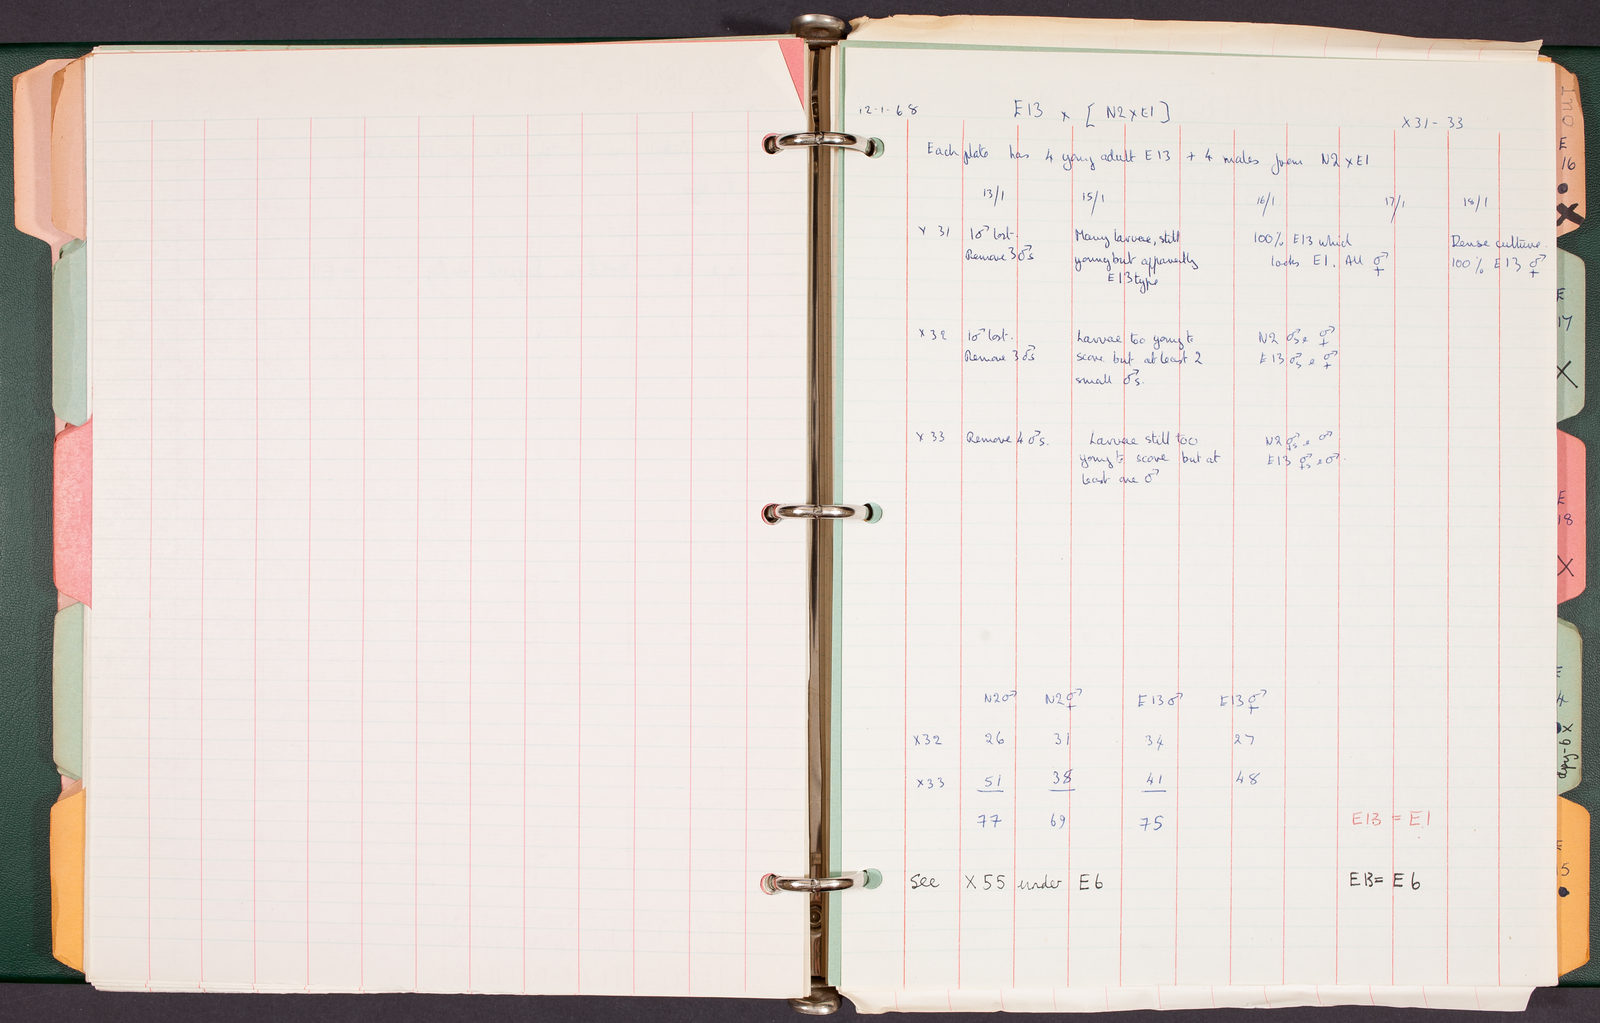 12-1-68 E13 x [N2xE1] X31-33
Each plate has 4 young adult E13 + 4 males from N2 x E1
13/1 15/1 16/1 17/1 18/1
X 31 1♂ lost. Many larvae, still 100% E13 which Dense culture.
Remove 3♂s young but apparently looks E1. All ⚥ 100% E13 ⚥
E13 type
X 32 1♂ lost. Larvae too young to N2 ♂s & ⚥
Remove 3♂s score but at least 2 E13 ♂s & ⚥
small ♂s.
X 33 Remove 4♂s. Larvae still too N2 ⚥s & ♂
young to score but at E13 ⚥s & ♂.
least one ♂
N2♂ N2⚥ E13♂ E13⚥
X32 26 31 34 27
X33 51 38 41 48
77 69 75
E13 = E1
See X55 under E6 E13 = E6
E
16
X
E
17
X
E
18
X
E
4
dpy-6 X
E
5